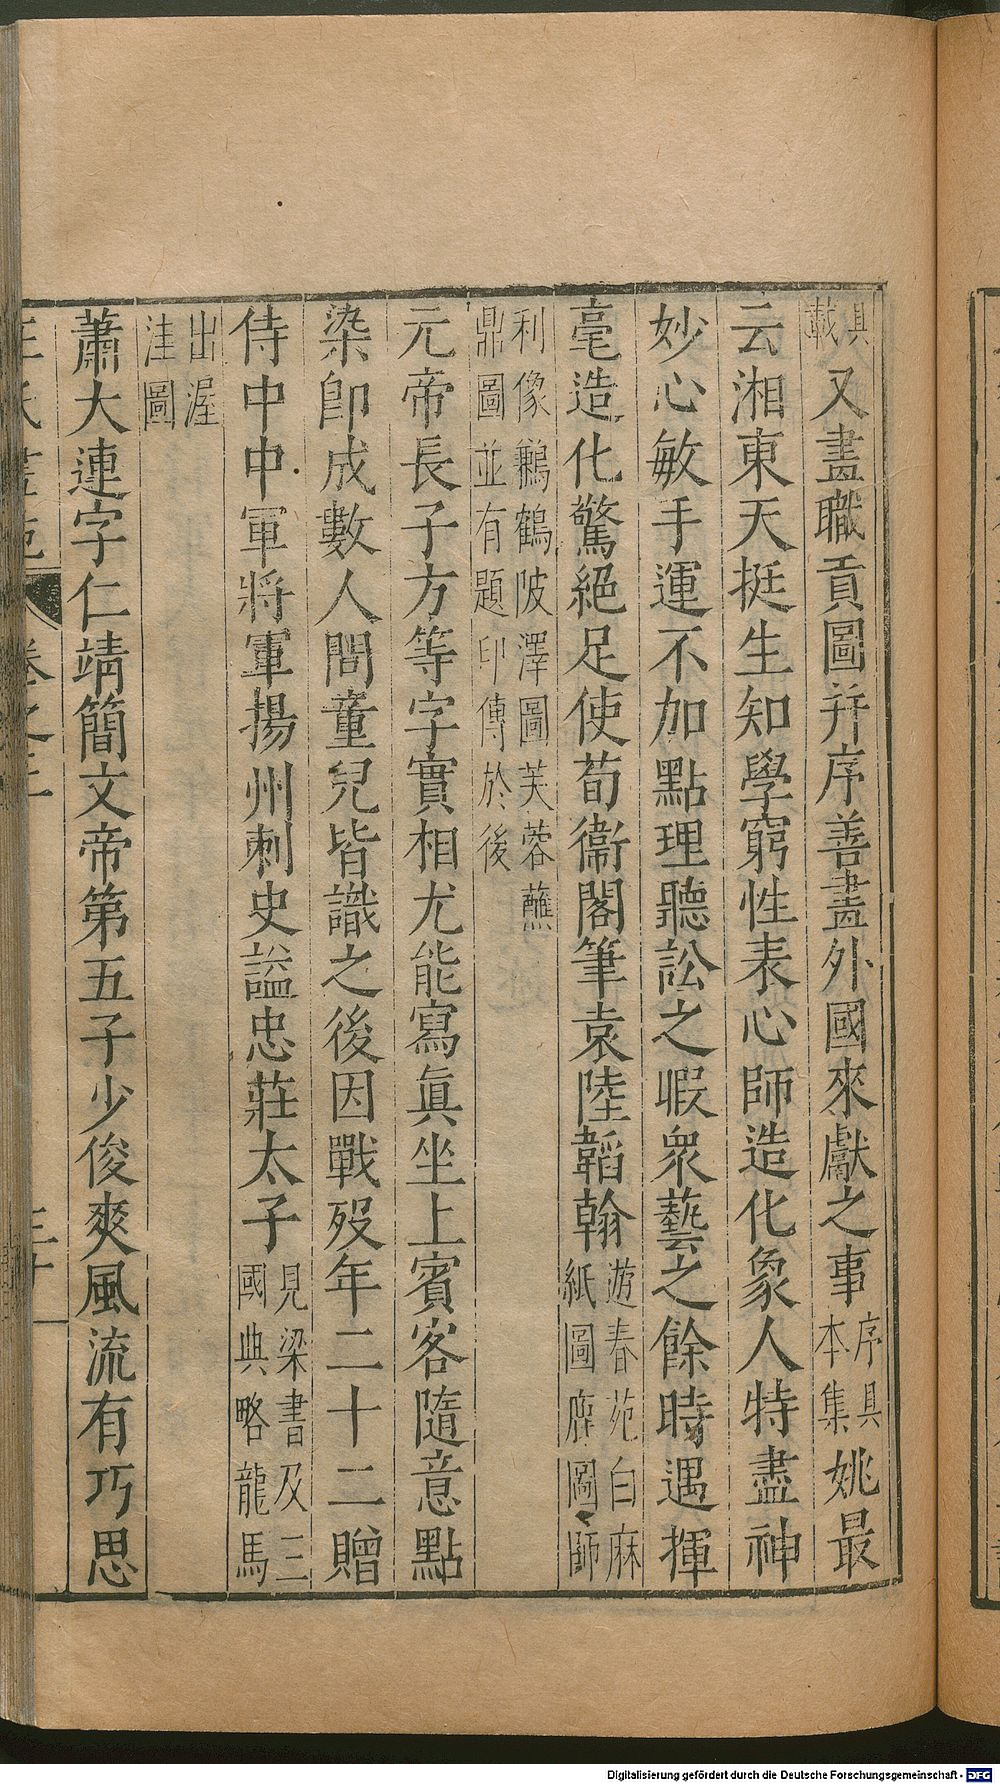 具載又畫職貢圖并序善畫外國來獻之事序具本集姚最
云湘東天挺生知學窮性表心師造化象人特盡神
妙心敏手運不加點理聽訟之暇眾藝之餘時遇揮
毫造化驚絕足使荀衞閣筆袁陸韜翰遊春苑白麻紙圖鹿圖師
利像鶼鶴陂澤圖芙蓉蘸鼎圖並有題印傳於後
元帝長子方等字實相尤能寫眞坐上賓客隨意點
染卽成數人問童兒皆識之後因戰歿年二十二贈
侍中中軍將軍揚州刺史謚忠莊太子見梁書及三國典略龍馬
出渥洼圖
蕭大連字仁靖簡文帝第五子少俊爽風流有巧思
王氏畫苑 卷之三
Digitalisierung gefördert durch die Deutsche Forschungsgemeinschaft - DFG